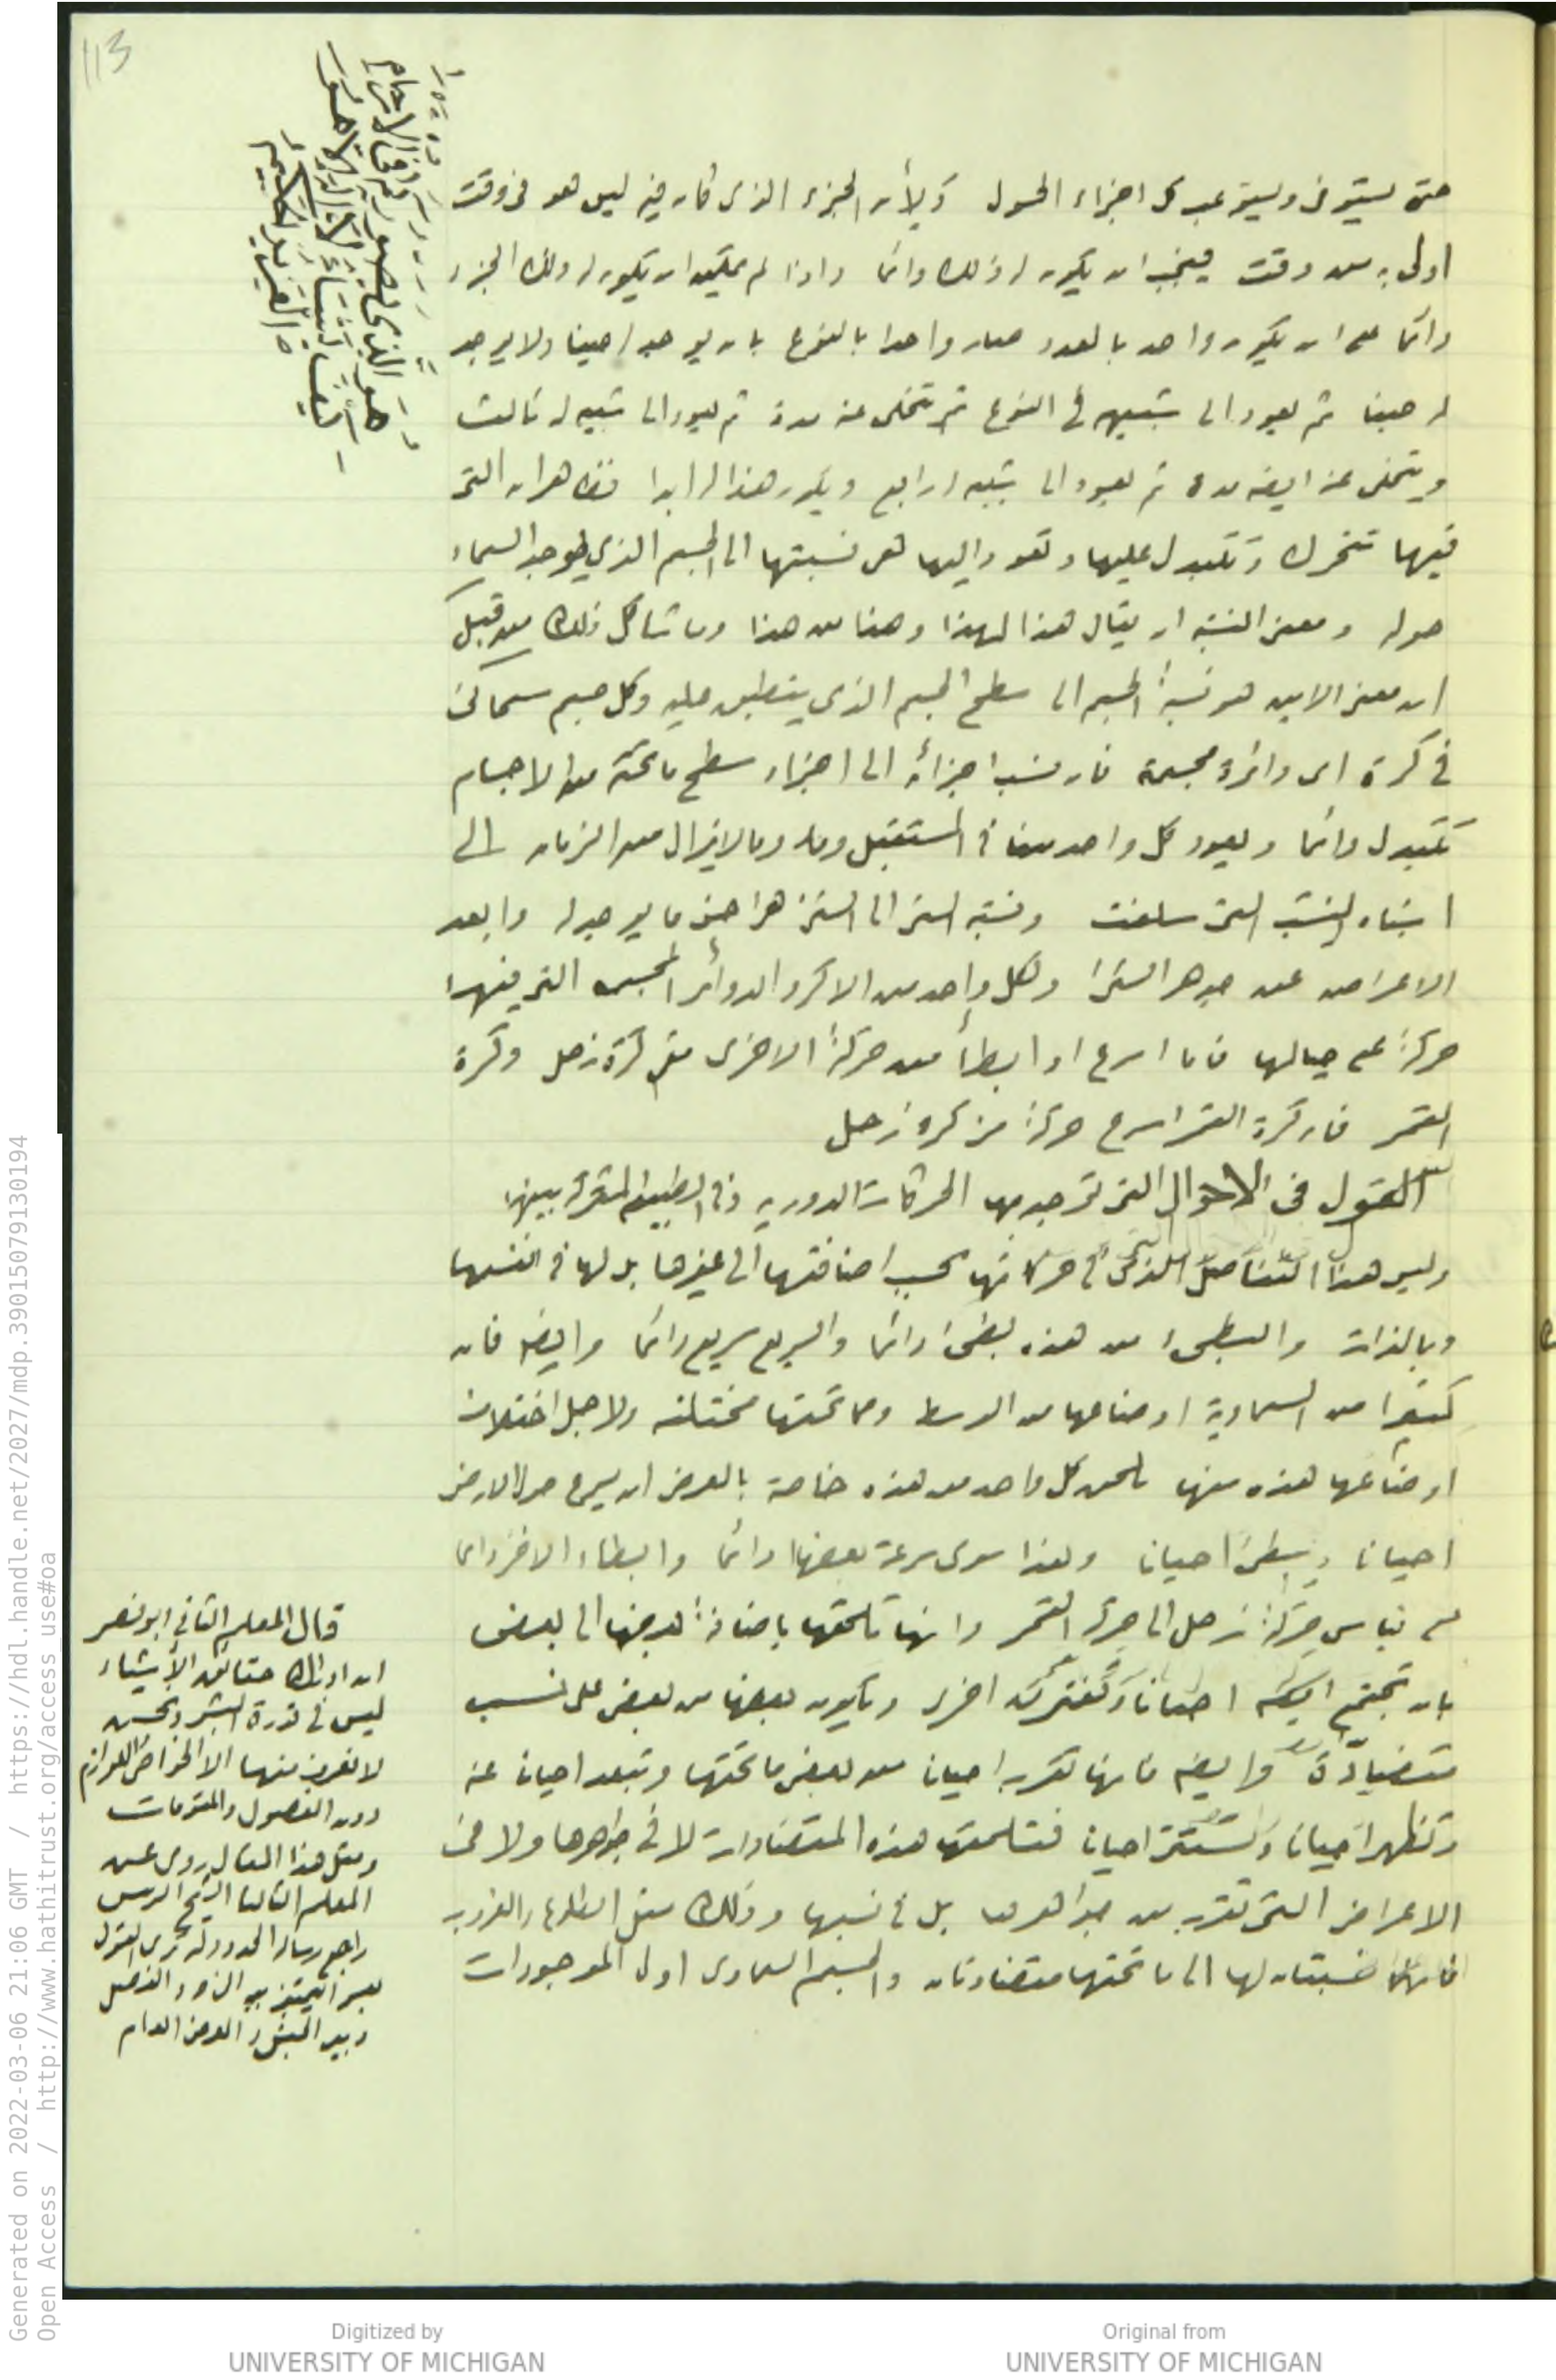 113
وهو الذي يصوركم في الارحام
كيف يشاء لا اله الا هو
العزيز الحكيم
حتى يستوفى ويستوعب كل اجزاء الحول ولأن الجزء الذى كان فيه ليس هو فى وقت
اولى به من وقت فيجب ان يكون له ذلك دائما واذا لم يمكن ان يكون له ذلك الجزء
دائما على ان يكون واحد بالعدد صار واحدا بالنوع بان يوجد له حينا ولا يوجد
له حينا ثم يعود الى شبيهه فى النوع ثم يتخلى عنه مدة ثم يعود الى شبيه له ثالث
ويتخلى عنه ايضه مدة ثم يعود الى شبيه له رابع ويكون هذا له ابدا فظاهر ان التى
فيها تتحرك وتتبدل عليها وتعود اليها هى نسبتها الى الجسم الذي يوجد السماء
حوله ومعنى النسبة ان يقال هذا لهذا وهذا من هذا وما شاكل ذلك من قبل
ان معنى الاين هو نسبة الجسم الى سطح الجسم الذى ينطبق عليه وكل جسم سمائى
في كرة اى دائرة مجسمة فان نسب اجزائه الى اجزاء سطح ما تحته من الاجسام
تتبدل دائما ويعود كل واحد منها فى المستقبل من الزمان الى
اشباه النسب التى سلفت ونسبة الشئ الى الشئ هى اخس ما يوجد له وابعد
الاعراض عن جوهر الشئ ولكل واحد من الاكر والدوائر المجسمه التى فيها
حركة على حيالها فاما اسرع او ابطأ من حركة الاخرى مثل كرة زحل وكرة
القمر فان كرة القمر اسرع حركة من كرة زحل
القول فى الاحوال التى توجد بها الحركات الدوريه وفى الطبيعه المشتركه بينها
وليس هذا التفاضل الذى فى حركاتها بحسب اضافتها الى غيرها بل لها فى انفسها
وبالذات والبطىء من هذه بطىء دائما والسريع سريع دائما وايضا فان
كثيرا من السماوية اوضاعها من الوسط ومما تحتها مختلفه ولاجل اختلاف
اوضاعها هذه منها تلحق كل واحد من هذه خاصة بالعرض ان يسرع حول الارض
احيانا ويبطئ احيانا وهذا سوى سرعة بعضها دائما وابطاء الاخر دائما
على قياس حركة زحل الى حركة القمر وانها تلحقها باضافة بعضها الى بعض
بان تجتمع احيانا وتفترق اخرى ويكون بعضها من بعض على نسب
متضادة وايضه فانها تقرب احيانا من بعض ما تحتها وتبعد احيانا عنه
وتظهر احيانا وتستتر احيانا فتلحقها هذه المتضادات لا فى جواهرها ولا فى
الاعراض التى تقرب من جواهرها بل فى نسبها وذلك مثل الطلوع والغروب
فانهما نسبتان لها الى ما تحتها متضادتان والجسم السماوى اول الموجودات
قال المعلم الثاني ابو نصر
ان ادراك حقائق الأشياء
ليس في قدرة البشر ونحن
لا نعرف منها الا الخواص واللوازم
دون الفصول والمقومات
ومثل هذا القال روى عن
المعلم الثالث الشيخ الرئيس
راجع رسالة الحدود
بين الجنس والعرض العام
Generated on 2022-03-06 21:06 GMT / https://hdl.handle.net/2027/mdp.39015079130194
Open Access / http://www.hathitrust.org/access_use#oa
Digitized by
UNIVERSITY OF MICHIGAN
Original from
UNIVERSITY OF MICHIGAN